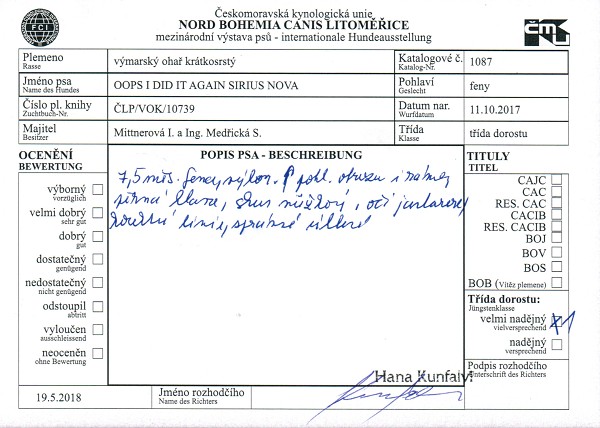 Českomoravská kynologická unie
NORD BOHEMIA CANIS LITOMĚŘICE
mezinárodní výstava psů - internationale Hundeausstellung
FCI
ČMKU
Plemeno
Rasse
výmarský ohař krátkosrstý
Katalogové č.
Katalog-Nr.
1087
Jméno psa
Name des Hundes
OOPS I DID IT AGAIN SIRIUS NOVA
Pohlaví
Geslecht
feny
Číslo pl. knihy
Zuchtbuch-Nr.
ČLP/VOK/10739
Datum nar.
Wurfdatum
11.10.2017
Majitel
Besitzer
Mittnerová I. a Ing. Medřická S.
Třída
Klasse
třída dorostu
OCENĚNÍ
BEWERTUNG
výborný
vorzüglich
velmi dobrý
sehr gut
dobrý
gut
dostatečný
genügend
nedostatečný
nicht genügend
odstoupil
abtritt
vyloučen
ausschleissend
neoceněn
ohne Bewertung
POPIS PSA - BESCHREIBUNG
7,5 měs. fena, výbor. pohl. obrazu i
skus nůžkový, oči
linie, správné
TITULY
TITEL
CAJC
CAC
RES. CAC
CACIB
RES. CACIB
BOJ
BOV
BOS
BOB (Vítěz plemene)
Třída dorostu:
Jüngstenklasse
velmi nadějný
vielversprechend
X1
nadějný
versprechend
Podpis rozhodčího
Unterschrift des Richters
Hana Kunfalvi
19.5.2018
Jméno rozhodčího
Name des Richters